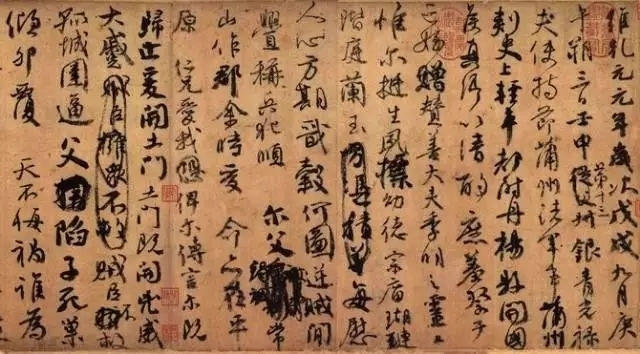 維乾元元年歲次戊戌九月庚
午朔三日壬申第十三叔銀青光祿
夫使持節蒲州諸軍事蒲州
刺史上輕車都尉丹楊縣開國
侯真卿以清酌庶羞祭于
亡姪贈贊善大夫季明之靈曰
惟爾挺生夙標幼德宗廟瑚璉
階庭蘭玉方憑積善每慰
人心方期戩穀何圖逆賊閒
釁稱兵犯順爾父竭誠常
山作郡余時受命亦在平
原仁兄愛我恐俾爾傳言爾既
歸止爰開土門土門既開兇威
大蹙賊臣擁眾不救賊臣不救
孤城圍逼父陷子死巢
傾卵覆天不悔禍誰為